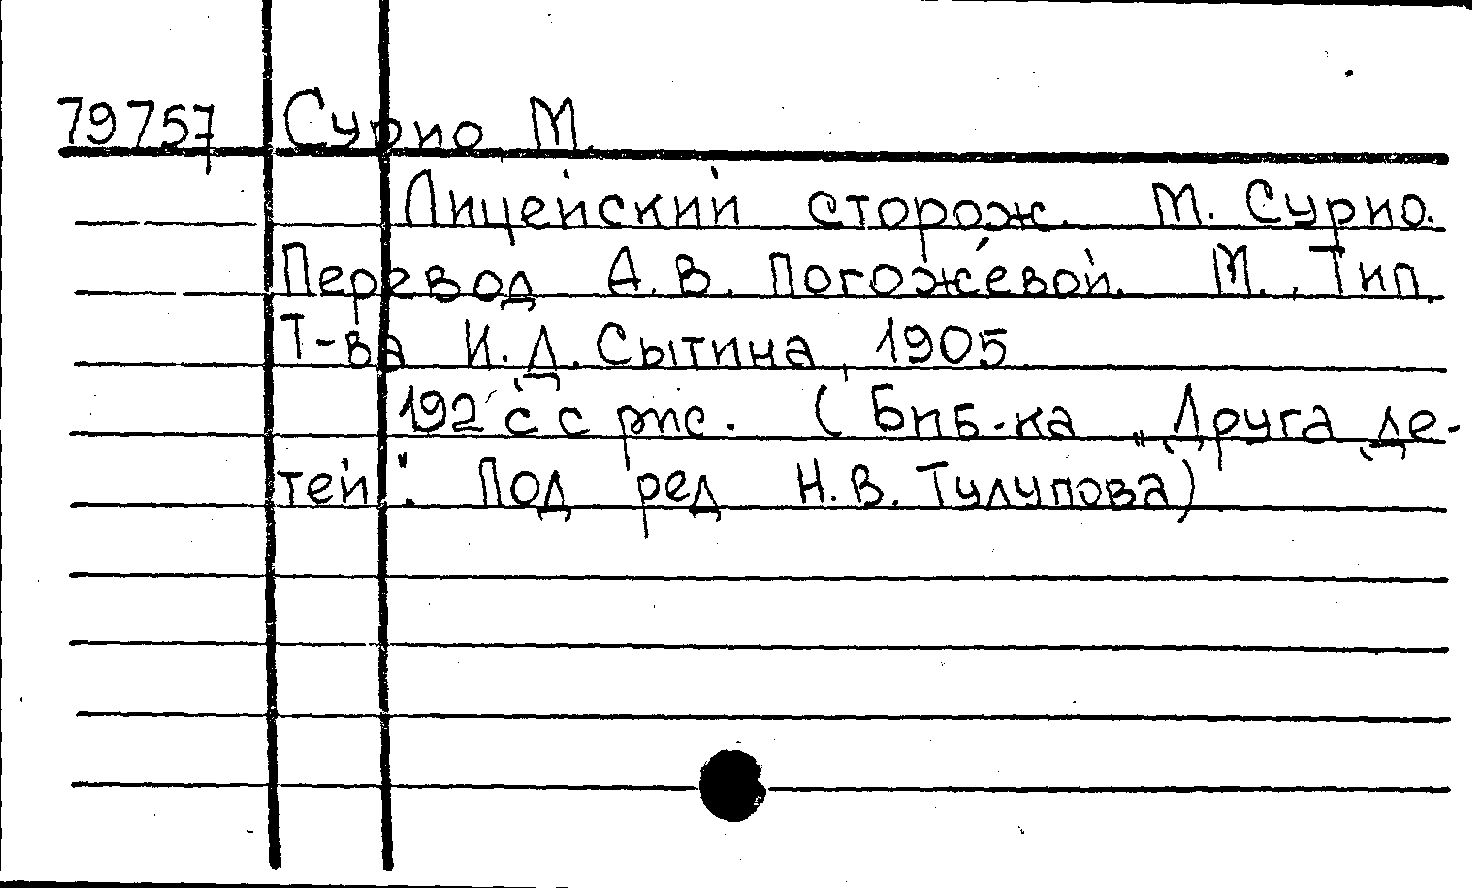 79757 Сурио М.
Лицейский сторож. М. Сурио.
Перевод А.В. Погоже́вой. М., Тип.
Т-ва И.Д. Сытина, 1905
192 с с рис. (Биб-ка „Друга де-
тей". Под ред Н.В. Тулупова)